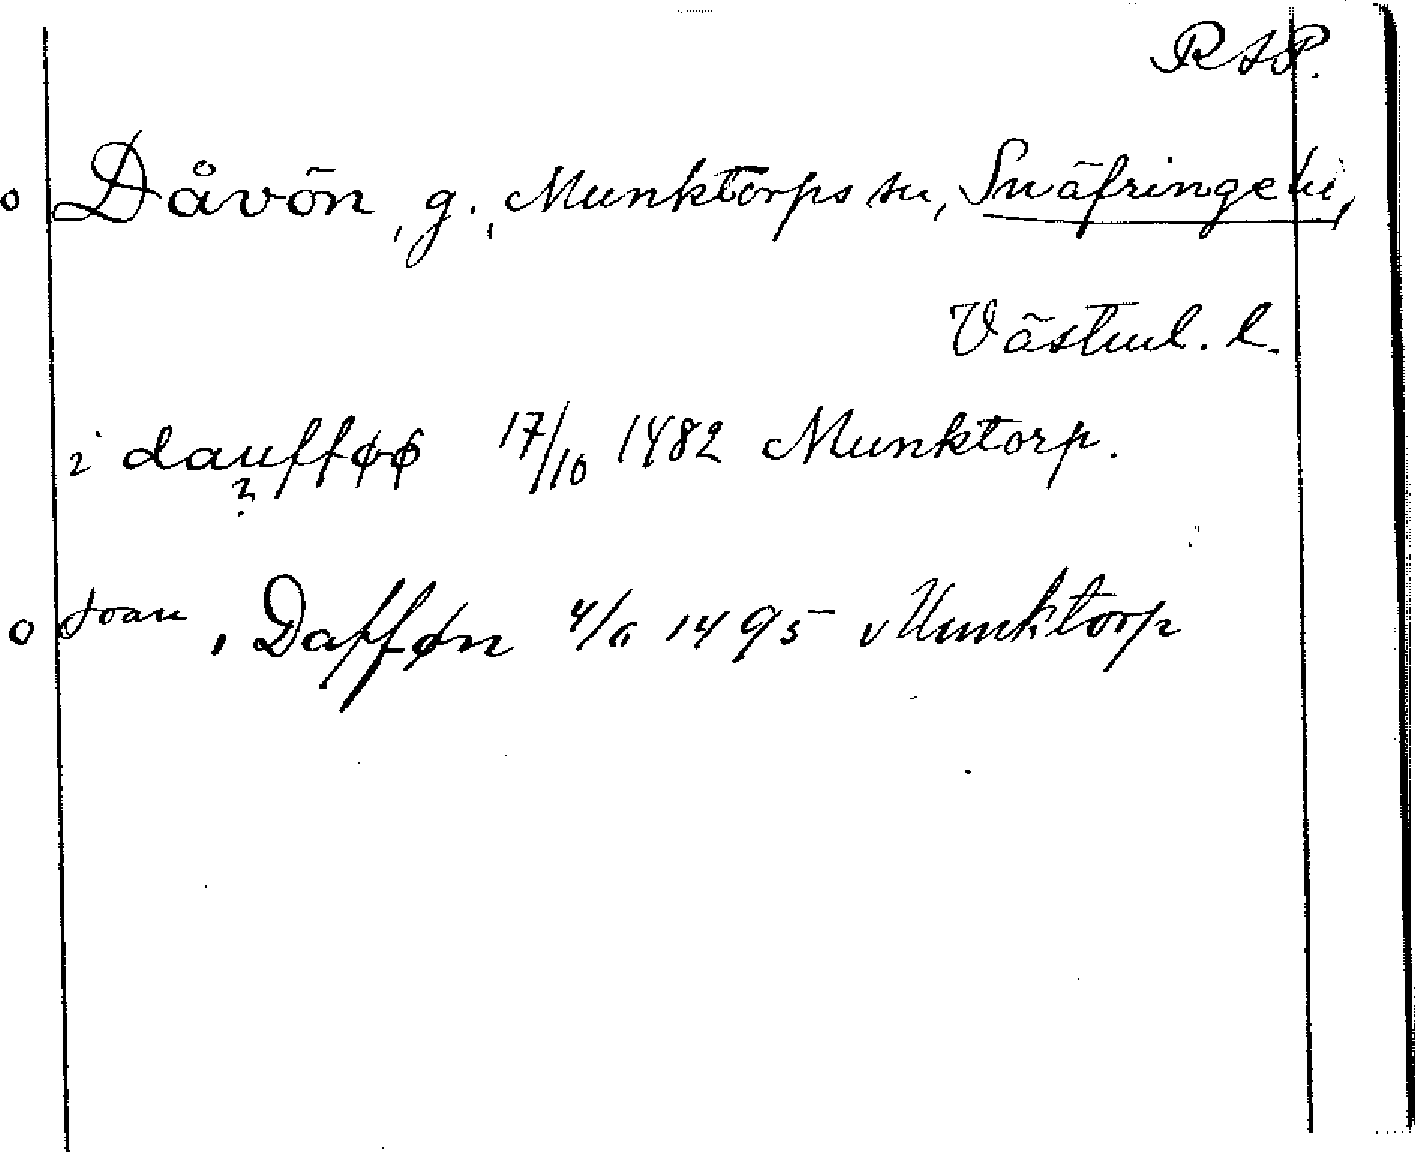 RAP.
Dåvön, g., Munktorps sn, Snäfringe hd,
Västml. l.
i daufføø 17/10 1482 Munktorp.
?
Joan, Dafføn 4/11 1495 Munktorp